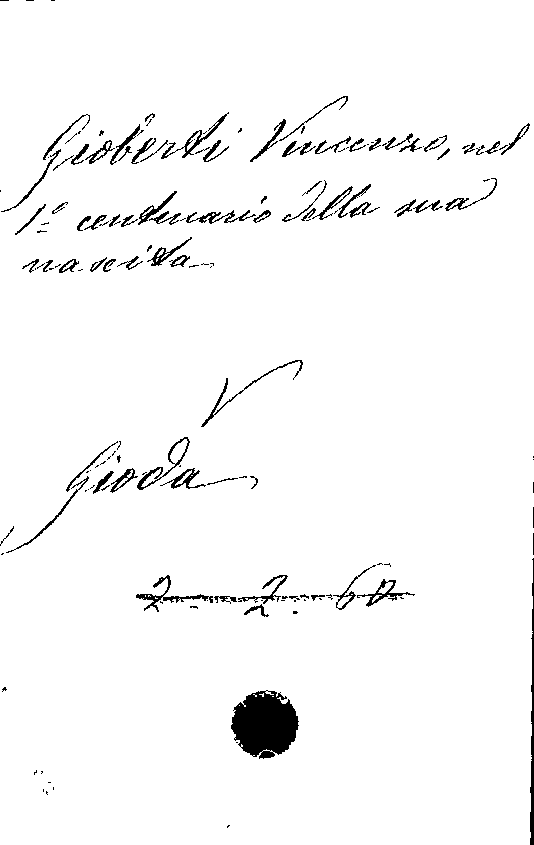 Gioberti Vincenzo, nel
1º centenario della sua
nascita
V
Gioda
2. 2. 60